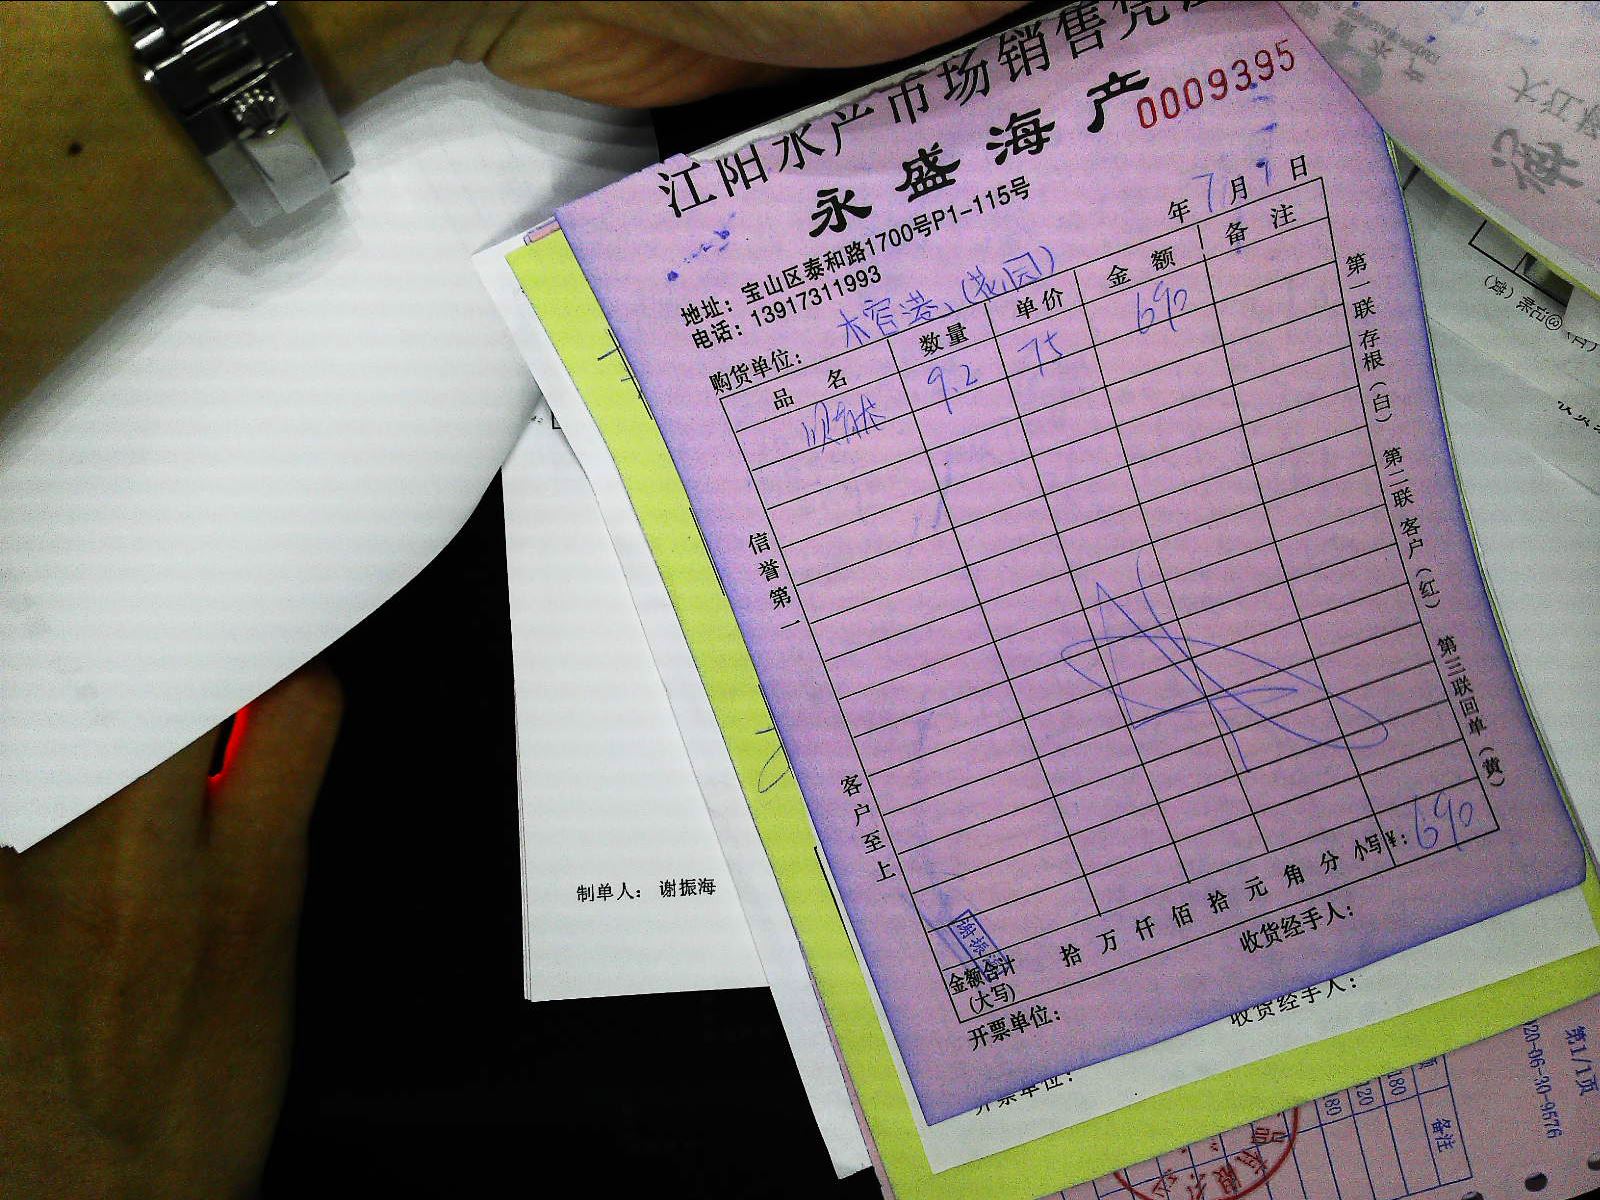 江阳水产市场销售凭证
永盛海产
0009395
地址：宝山区泰和路1700号P1-115号
电话：13917311993
年 7月9日
购货单位：木官港、(花园)
品名 数量 单价 金额 备注
9.2 75 690
信誉第一
客户至上
第一联存根（白） 第二联客户（红） 第三联回单（黄）
金额合计(大写) 拾 万 仟 佰 拾 元 角 分 小写¥：690
开票单位： 收货经手人：
收货经手人：
开票单位：
制单人： 谢振海
第1/1页
20-06-30-9576
备注
180
120
180